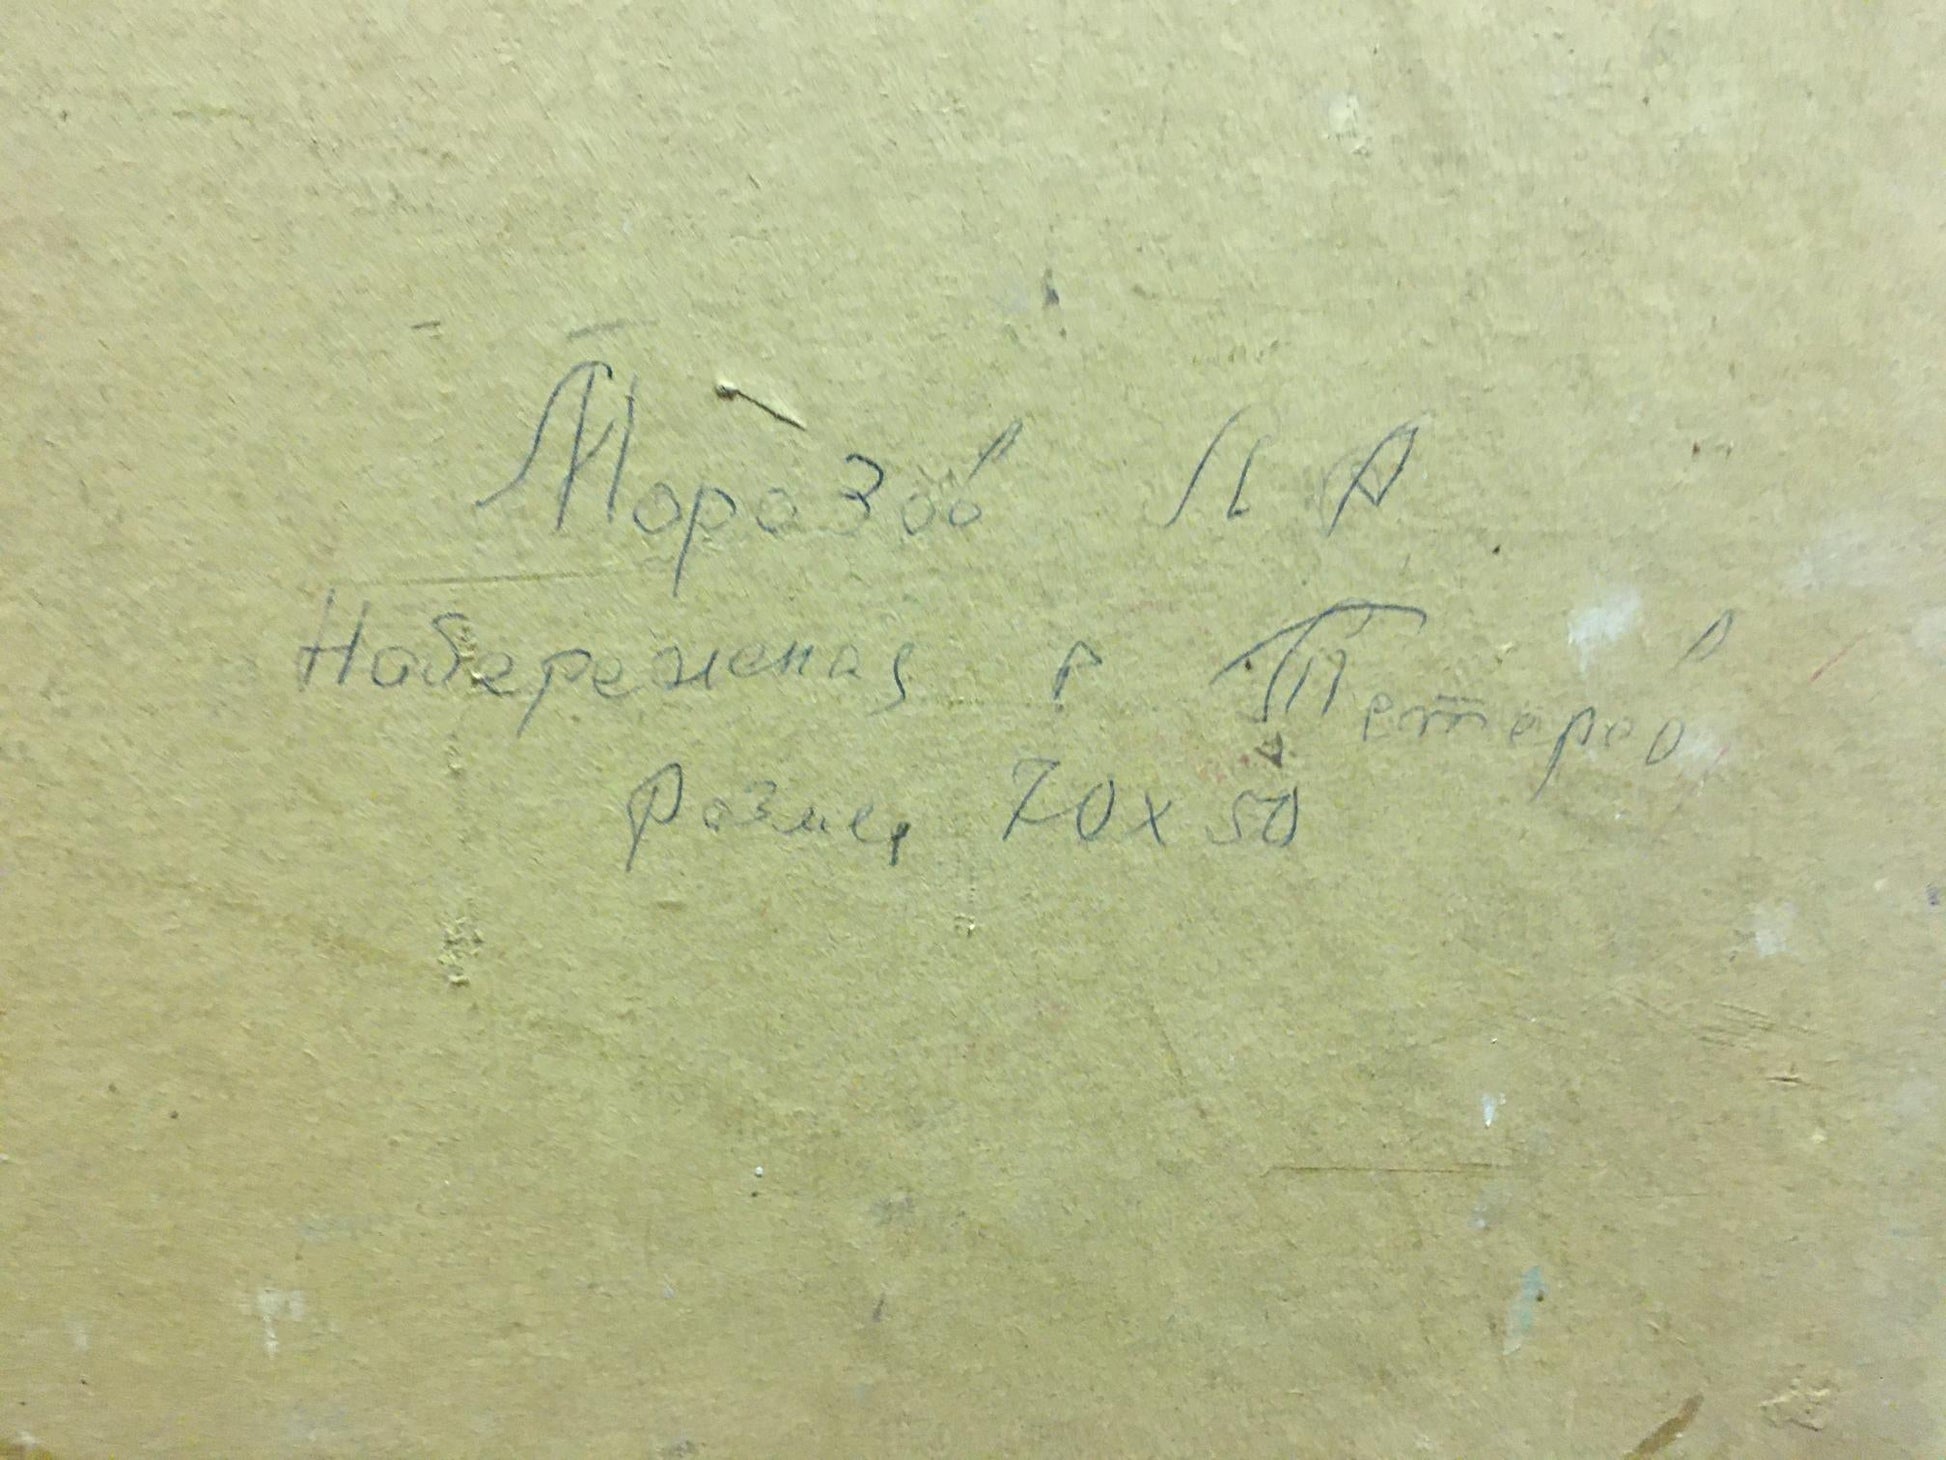 Морозов Л А
Набережная г Петерго
Размер 70х50